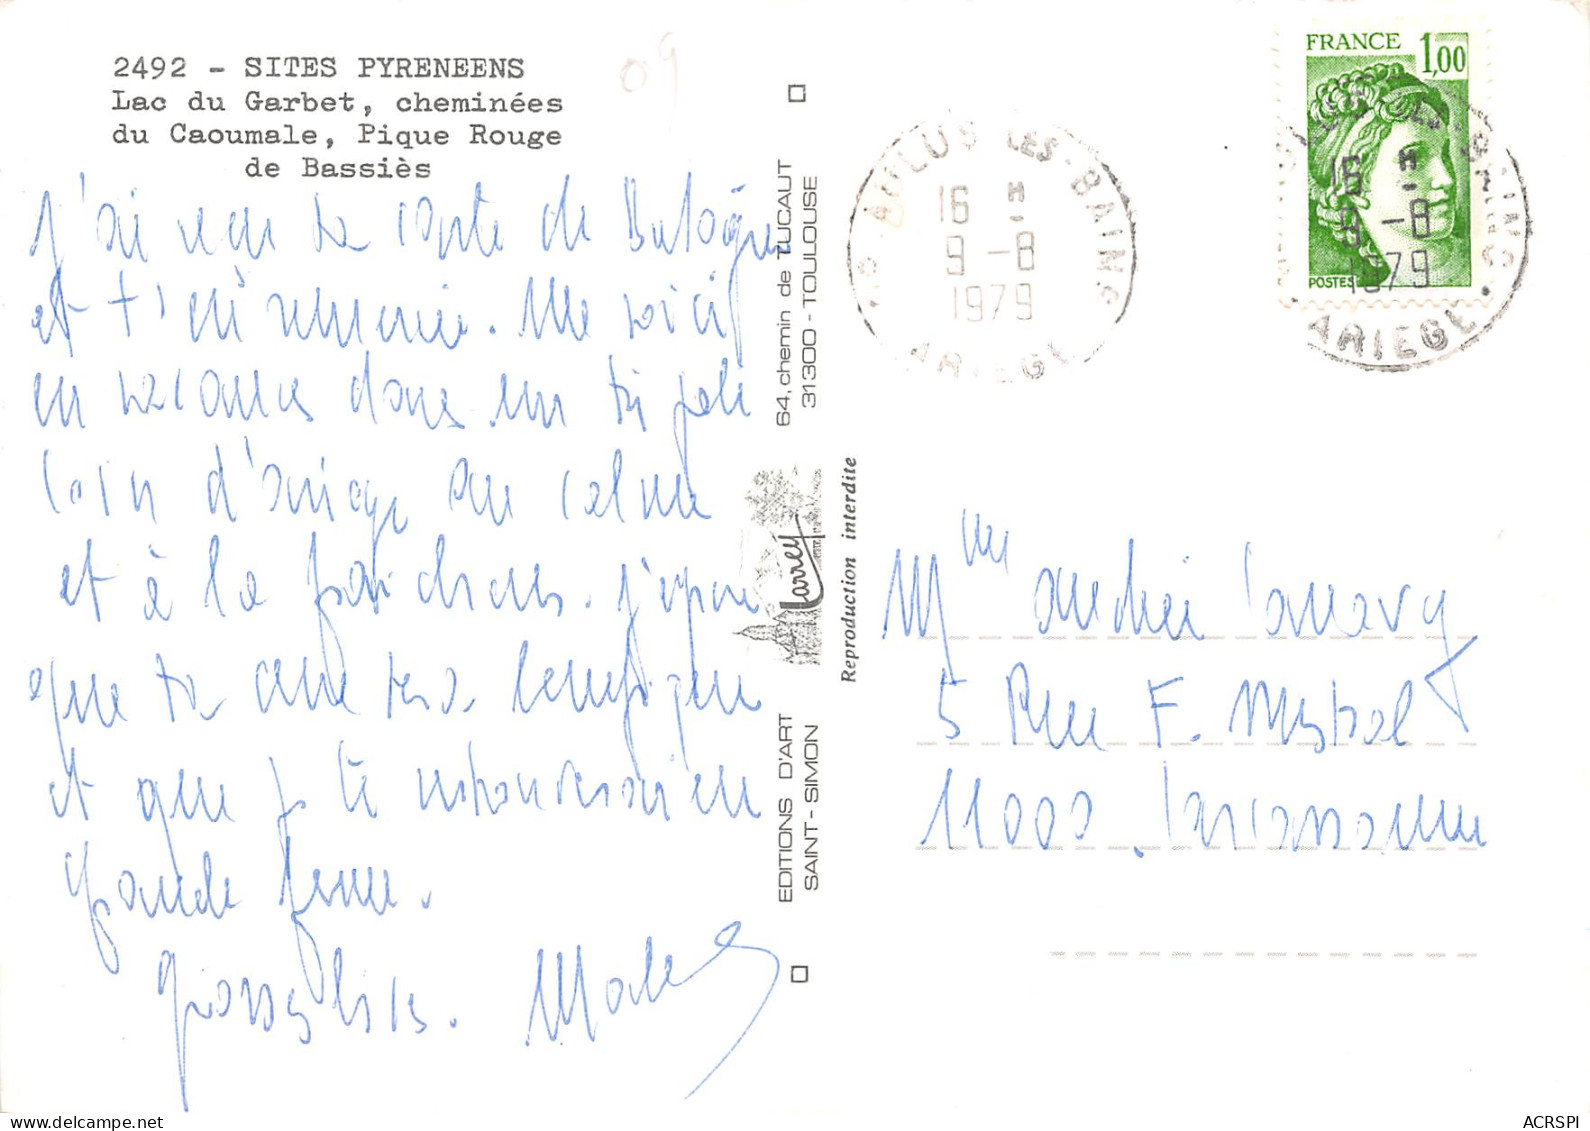 2492 - SITES PYRENEENS
Lac du Garbet, cheminées
du Caoumale, Pique Rouge
de Bassiès
09
J'ai reçu ta carte de Bulgarie
et t'en remercie. Me voici
en vacances dans un tri joli
coin d'ariège au calme
et à la fraicheur. J'espère
que ta cure sera bénéfique
et que je te retrouverai en
grande forme.
Gros bisous.
64, chemin de TUCAUT
31300 - TOULOUSE
Larrey
EDITIONS D'ART
SAINT-SIMON
Reproduction interdite
AULUS LES-BAINS
16 H
9 -8
1979
ARIEGE
FRANCE 1,00
POSTES
16 H
9 -8
1979
ARIEGE
5 Rue F. Mistral
11000. Carcassonne
ACRSPI